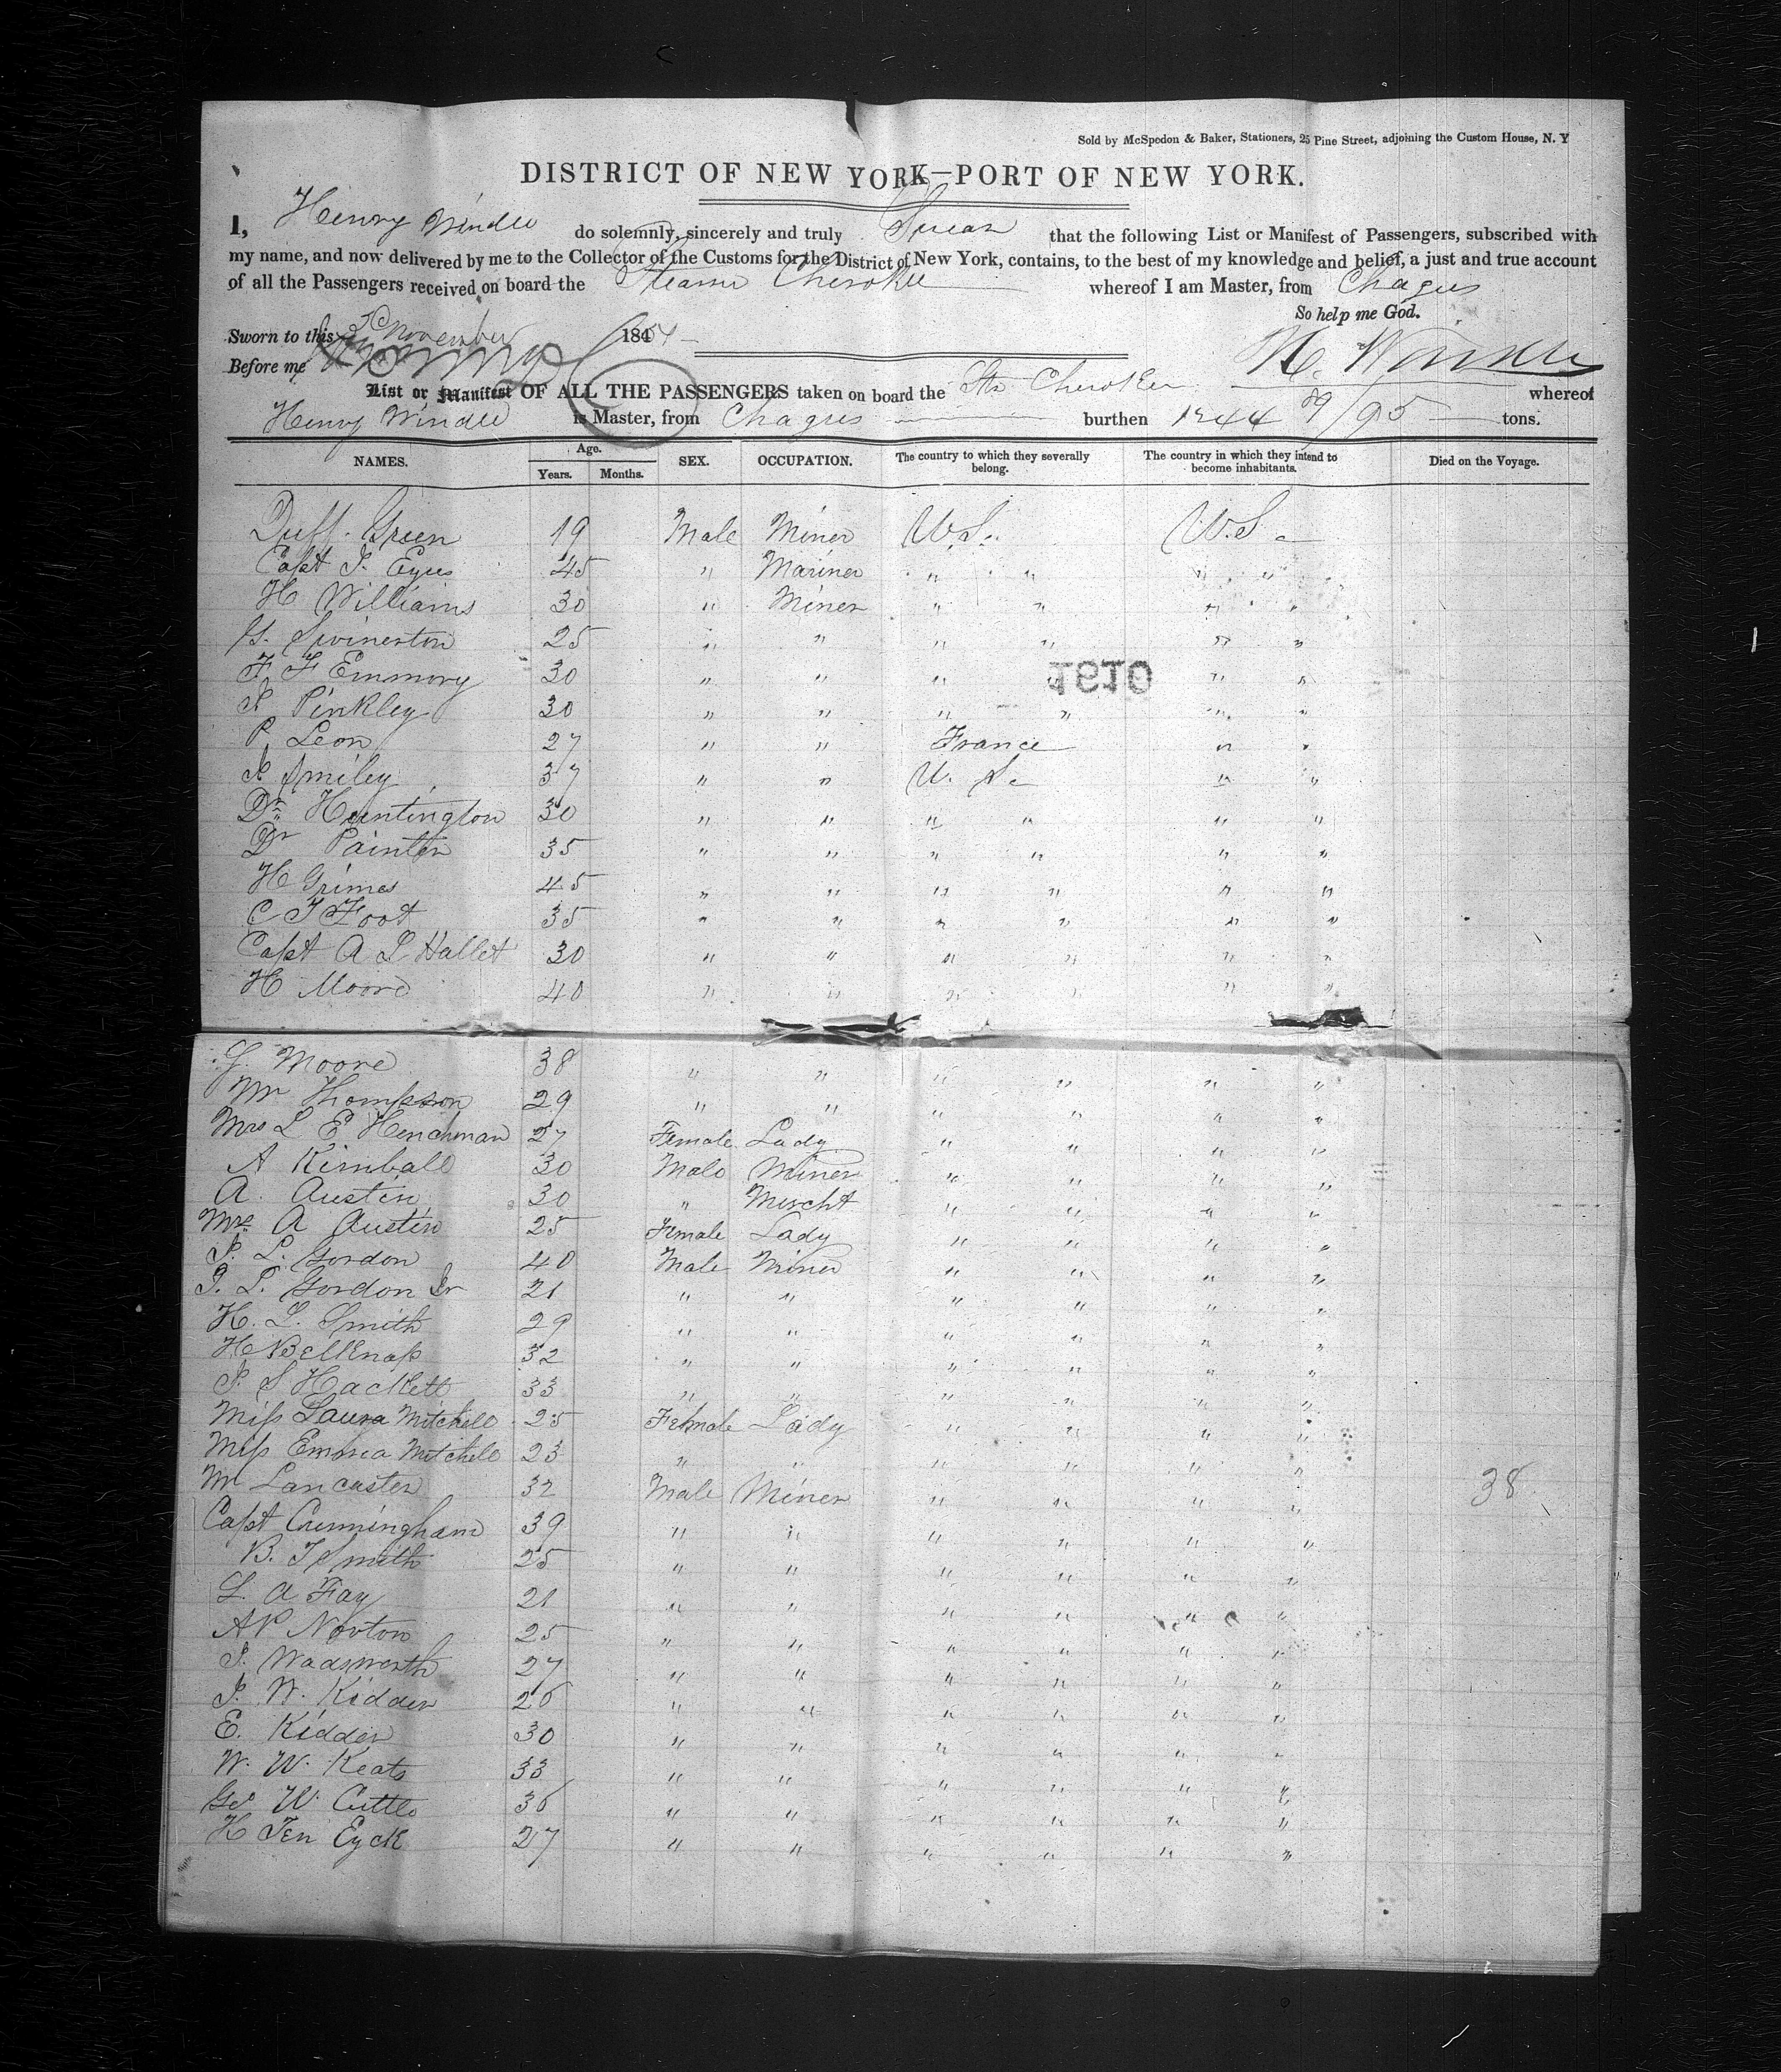 Sold by McSpedon & Baker, Stationers, 25 Pine Street, adjoining the Custom House, N. Y
DISTRICT OF NEW YORK—PORT OF NEW YORK.
I, Henry Windle do solemnly, sincerely and truly Swear that the following List or Manifest of Passengers, subscribed with
my name, and now delivered by me to the Collector of the Customs for the District of New York, contains, to the best of my knowledge and belief, a just and true account
of all the Passengers received on board the Steamr Cherokee whereof I am Master, from Chagres
So help me God.
Sworn to this November 184
Before me H. Windle
List or Manifest OF ALL THE PASSENGERS taken on board the Str Cherokee whereof
Henry Windle is Master, from Chagres burthen 1244 89/95 tons.
NAMES. Age. Years. Months. SEX. OCCUPATION. The country to which they severally belong. The country in which they intend to become inhabitants. Died on the Voyage.
Duff. Green 19 Male Miner U.S. U.S.
Capt J. Eyes 45 " Mariner " " " "
H Williams 30 " Miner " " " "
G. Swinerton 25 " " " " " "
F. F Emmory 30 " " " " " "
1610
J Pinkley 30 " " " " " "
P. Leon 27 " " France " "
J. Smiley 37 " " U. S. " "
Dr. Huntington 30 " " " " " "
Dr Painter 35 " " " " " "
H Grimes 45 " " " " " "
C T Foot 35 " " " " " "
Capt A L Hallet 30 " " " " " "
H Moore 40 " " " " " "
G. Moore 38 " " " " " "
Mr Thompson 29 " " " " " "
Mrs L E Henchman 27 Female Lady " " " "
A Kimball 30 Male Miner " " " "
A. Austin 30 " Mercht " " " "
Mrs A Austin 25 Female Lady " " " "
J. L. Gordon 40 Male Miner " " " "
J. L. Gordon Jr 21 " " " " " "
H. L. Smith 29 " " " " " "
H Bellknap 32 " " " " " "
J. S Hackett 33 " " " " " "
Miss Laura Mitchell 25 Female Lady " " " "
Miss Emma Mitchell 23 " " " " " "
Mr Lancaster 32 Male Miner " " " " 38
Capt Cunningham 39 " " " " " "
B. T Smith 25 " " " " " "
L. A Fay 21 " " " " " "
A P Norton 25 " " " " " "
J. Wadsworth 27 " " " " " "
J. W. Kidder 26 " " " " " "
E. Kidder 30 " " " " " "
W. W. Keats 33 " " " " " "
Geo W. Cuttle 36 " " " " " "
H Ten Eyck 27 " " " " " "